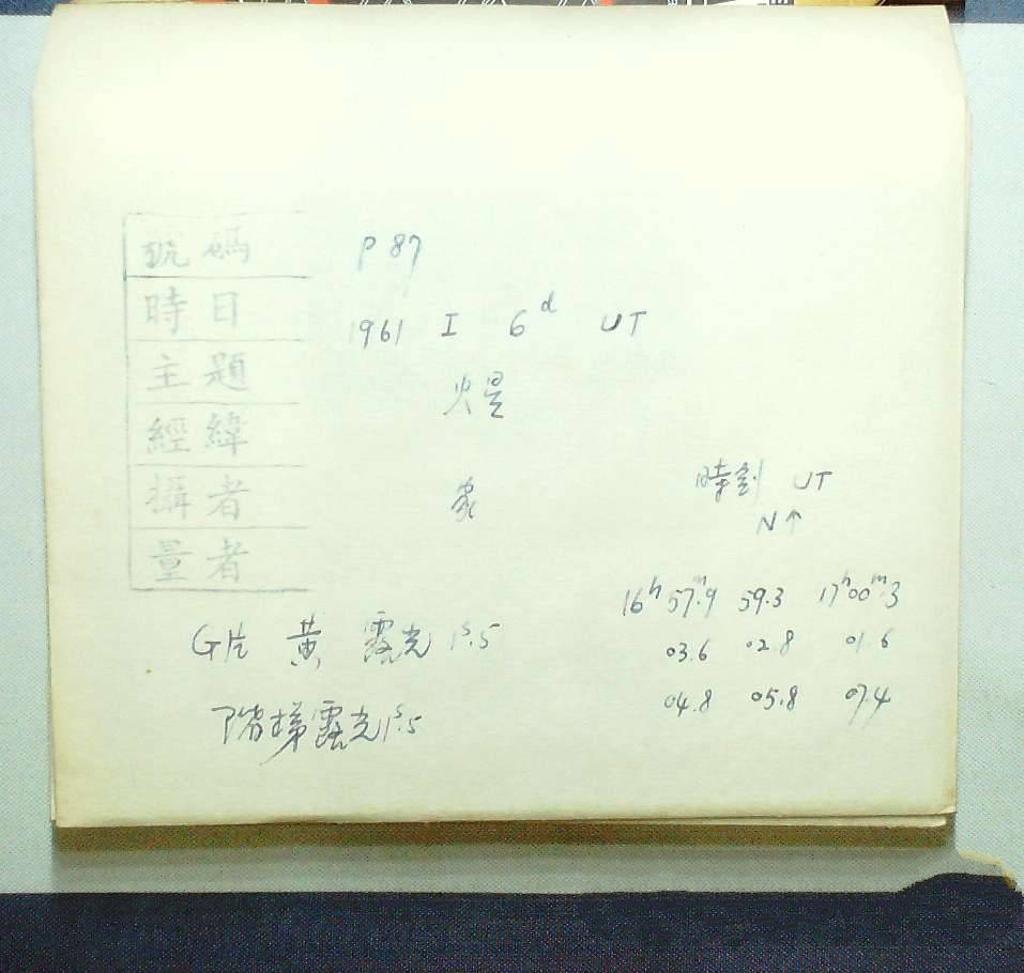 號碼 P 87
時日 1961 I 6ᵈ UT
主題 火星
經緯
攝者
量者
時刻 UT
N↑
16ʰ57ᵐ.9 59.3 17ʰ00ᵐ.3
03.6 02.8 01.6
04.8 05.8 07.4
G片 黄 露光 1ˢ.5
階梯露光1ˢ.5